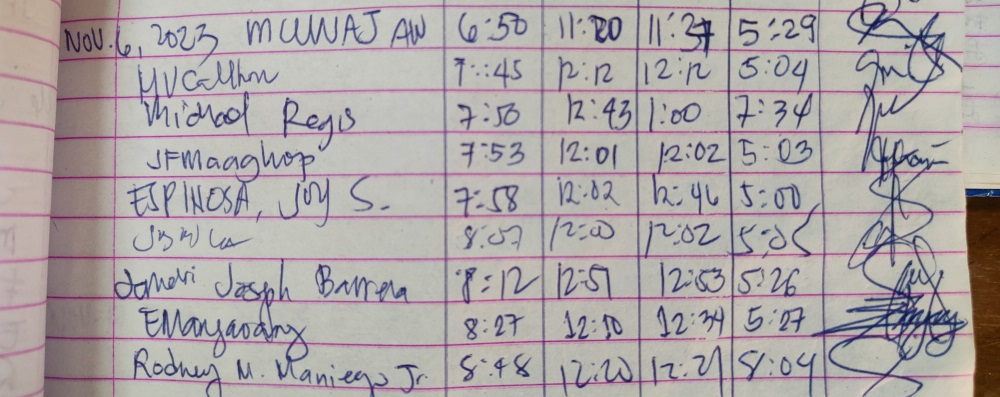 Nov. 6, 2023 MUNAJ AW 6:50 11:20 11:37 5:29
7:45 12:12 12:12 5:04
Michael Regis 7:50 12:43 1:00 7:34
JFMaaghop 7:53 12:01 12:02 5:03
ESPINOSA, JOY S. 7:58 12:02 12:46 5:00
8:07 12:00 12:02 5:05
Jomari Joseph Barrera 8:12 12:51 12:53 5:26
EManyaoang 8:27 12:10 12:34 5:27
Rodney M. Maniego Jr. 8:48 12:20 12:21 8:04